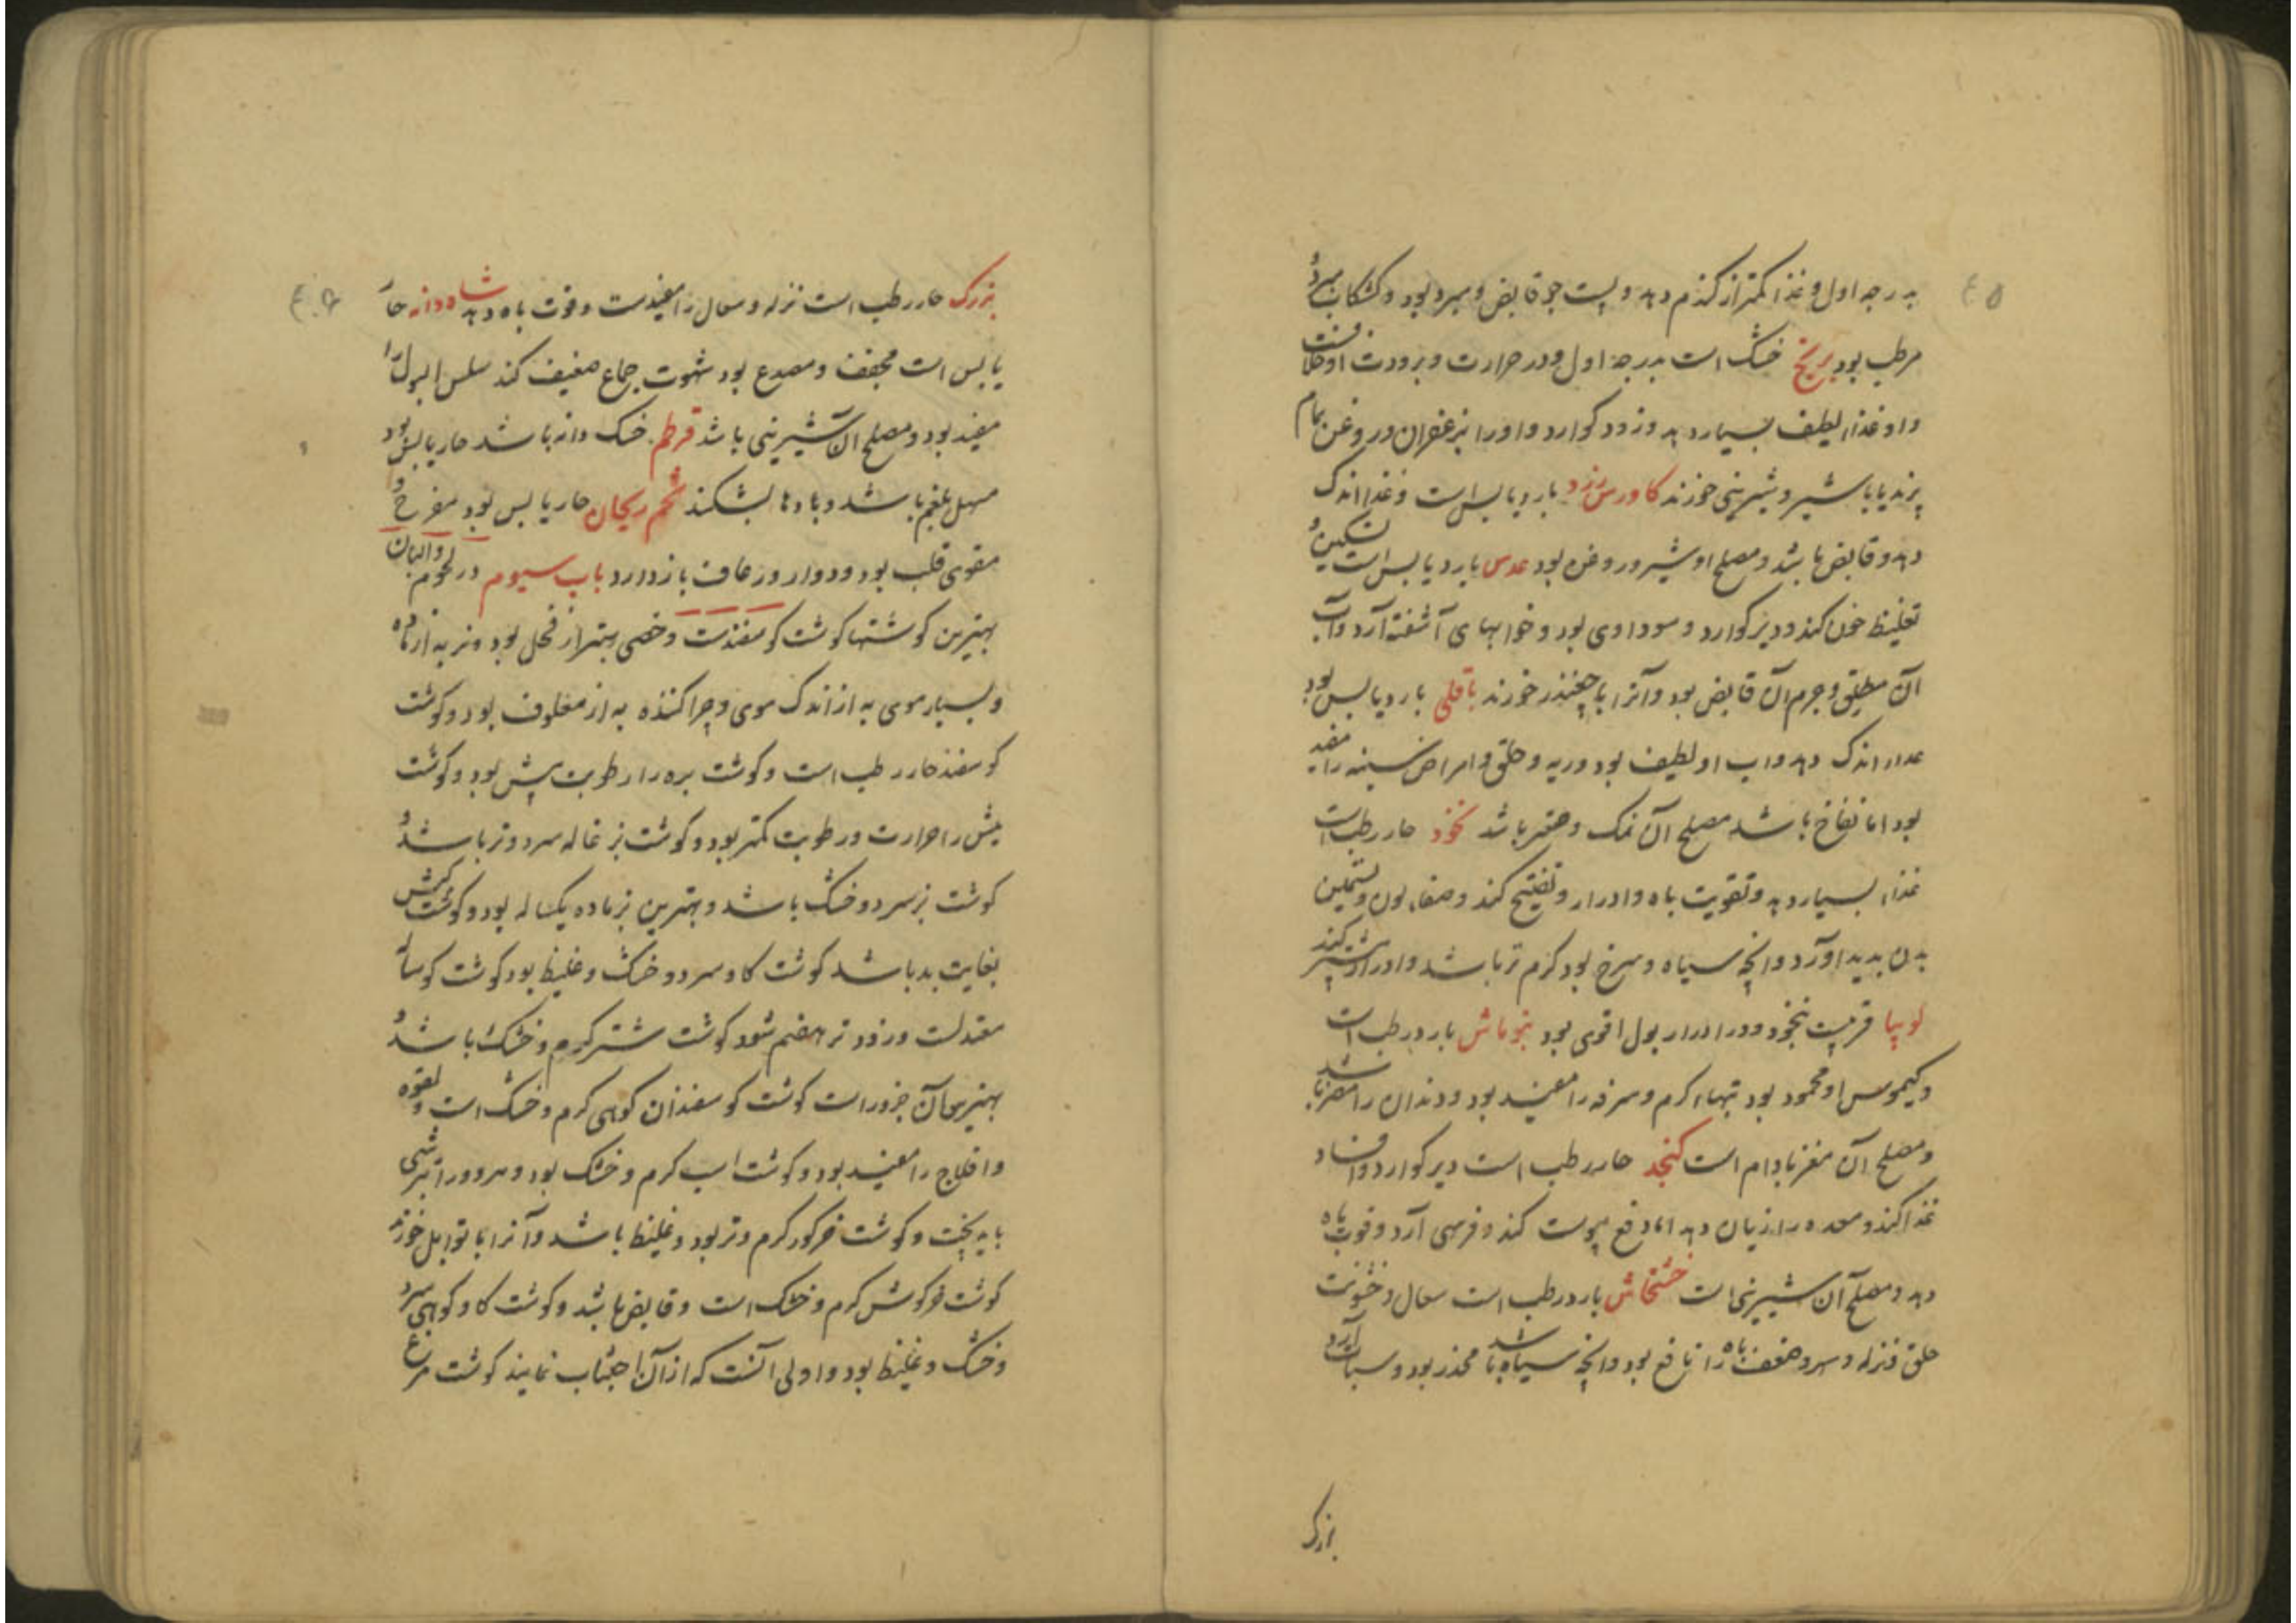 بدرجه اول و غذا کمتر از کندم دهد و پست جو قابض و مبرد بود و کشکاب مبرد و
مرطب بود برنج خشک است بدرجه اول و در حرارت و برودت او خلافست
و او غذاء لطیف بسیار دهد و زود کوارد و او را بزعفران و روغن بادام
پزند یا با شیر و شیرینی خورند کاورس زرد بارد یابس است و غذا اندک
دهد و قابض باشد و مصلح او شیر و روغن بود عدس بارد یابس است تسکین و
تغلیظ خون کند و دیر کوارد و سوداوی بود و خوابهای آشفته آرد و آب
آن مطلق و جرم آن قابض بود و آنرا با چغندر خورند باقلی بارد یابس بود
غذاء اندک دهد و اب او لطیف بود و ریه و حلق و امراض سینه را مفید
بود اما نفاخ باشد مصلح آن نمک و صعتر باشد نخود حار رطب است
غذاء بسیار دهد و تقویت باه و ادرار و تفتیح کند و صفاء لون و تسمین
بدن بدید اورد و انچه سیاه و سرخ بود کرم تر باشد و ادرار بیشتر کند
لوبیا قریبست بنخود و در ادرار بول اقوی بود بنوماش بارد رطب است
و کیموس او محمود بود تبهاء کرم و سرفه را مفید بود و دندان را مضر باشد
و مصلح آن مغز بادام است کنجد حار رطب است دیر کوارد و افساد
غذا کند و معده را زیان دهد اما دفع یبوست کند و فربهی آرد و قوت باه
دهد و مصلح آن شیرینی است خشخاش بارد رطب است سعال و خشونت
حلق و نزله و سهر و ضعف باه را نافع بود و انچه سیاه باشد مخدر بود و سبات آرد
بزرک
بزرک حار رطب است نزله و سعال را مفیدست و قوت باه دهد شاه دانه حار
یابس است مجفف و مصدع بود شهوت جماع ضعیف کند سلس البول را
مفید بود و مصلح آن شیرینی باشد قرطم خسک دانه باشد حار یابس بود
مسهل بلغم باشد و بادها بشکند تخم ریحان حار یابس بود مفرح و
مقوی قلب بود و دوار و رعاف بازدارد باب سیوم در لحوم و البان
بهترین کوشتها کوشت کوسفندست و خصی بهتر از فحل بود و نر به از ماده
و بسیار موی به از اندک موی و چراکننده به از معلوف بود و کوشت
کوسفند حار رطب است و کوشت بره را رطوبت بیش بود و کوشت
میش را حرارت و رطوبت کمتر بود و کوشت بزغاله سرد و تر باشد و
کوشت بز سرد و خشک باشد و بهترین بز ماده یکساله بود و کوشت کبش
بغایت بد باشد کوشت کاو سرد و خشک و غلیظ بود کوشت کوساله
معتدلست و زودتر هضم شود کوشت شتر کرم و خشک باشد و
بهترین آن جزور است کوشت کوسفندان کوهی کرم و خشک است و لقوه
و افلاج را مفید بود و کوشت اسب کرم و خشک بود و هر دو را بترشی
باید پخت و کوشت خرکور کرم و تر بود و غلیظ باشد و آنرا با توابل خورند
کوشت خرکوش کرم و خشک است و قابض باشد و کوشت کاو کوهی سرد
و خشک و غلیظ بود و اولی آنست که از آن اجتناب نمایند کوشت مرغ